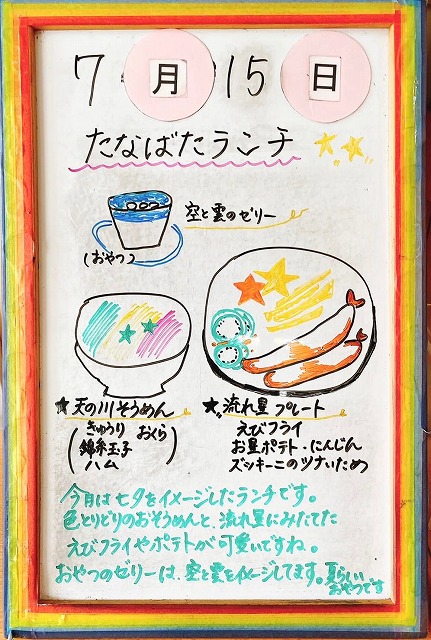 7月15日
たなばたランチ
空と雲のゼリー
(おやつ)
★天の川そうめん
(きゅうり おくら
錦糸玉子
ハム)
★流れ星プレート
えびフライ
お星ポテト・にんじん
ズッキーニのツナいため
今月は七夕をイメージしたランチです。
色とりどりのおそうめんと、流れ星にみたてた
えびフライやポテトが可愛いですね。
おやつのゼリーは、空と雲をイメージしてます。夏らしい
おやつです